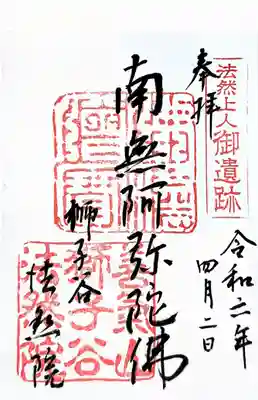 法然上人御遺跡
奉拝
令和二年
四月二日
南無阿弥陀佛
獅子谷
法然院